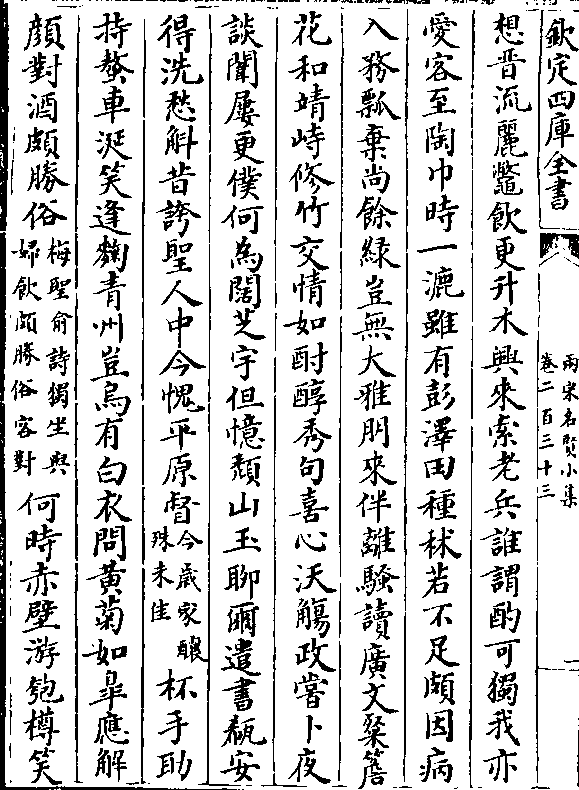 欽定四庫全書
兩宋名賢小集
卷二百三十三
一
想晋流麗鼈飲更升木興來索老兵誰謂酌可獨我亦
愛客至陶巾時一漉雖有彭澤田種秫若不足頗因病
入務瓢棄尚餘緑豈無大雅朋來伴離騷讀廣文粲簷
花和靖峙脩竹交情如酎醇秀句喜心沃觴政嘗卜夜
談闌屢更僕何為闊芝宇但憶頽山玉聊爾遣書瓻安
得洗愁斛昔誇聖人中今愧平原督今歳家釀殊未佳杯手助
持螯車涎笑逢麴青州豈烏有白衣問黄菊如臯應解
顔對酒頗勝俗梅聖俞詩獨坐與婦飲頗勝俗客對何時赤壁游匏樽笑